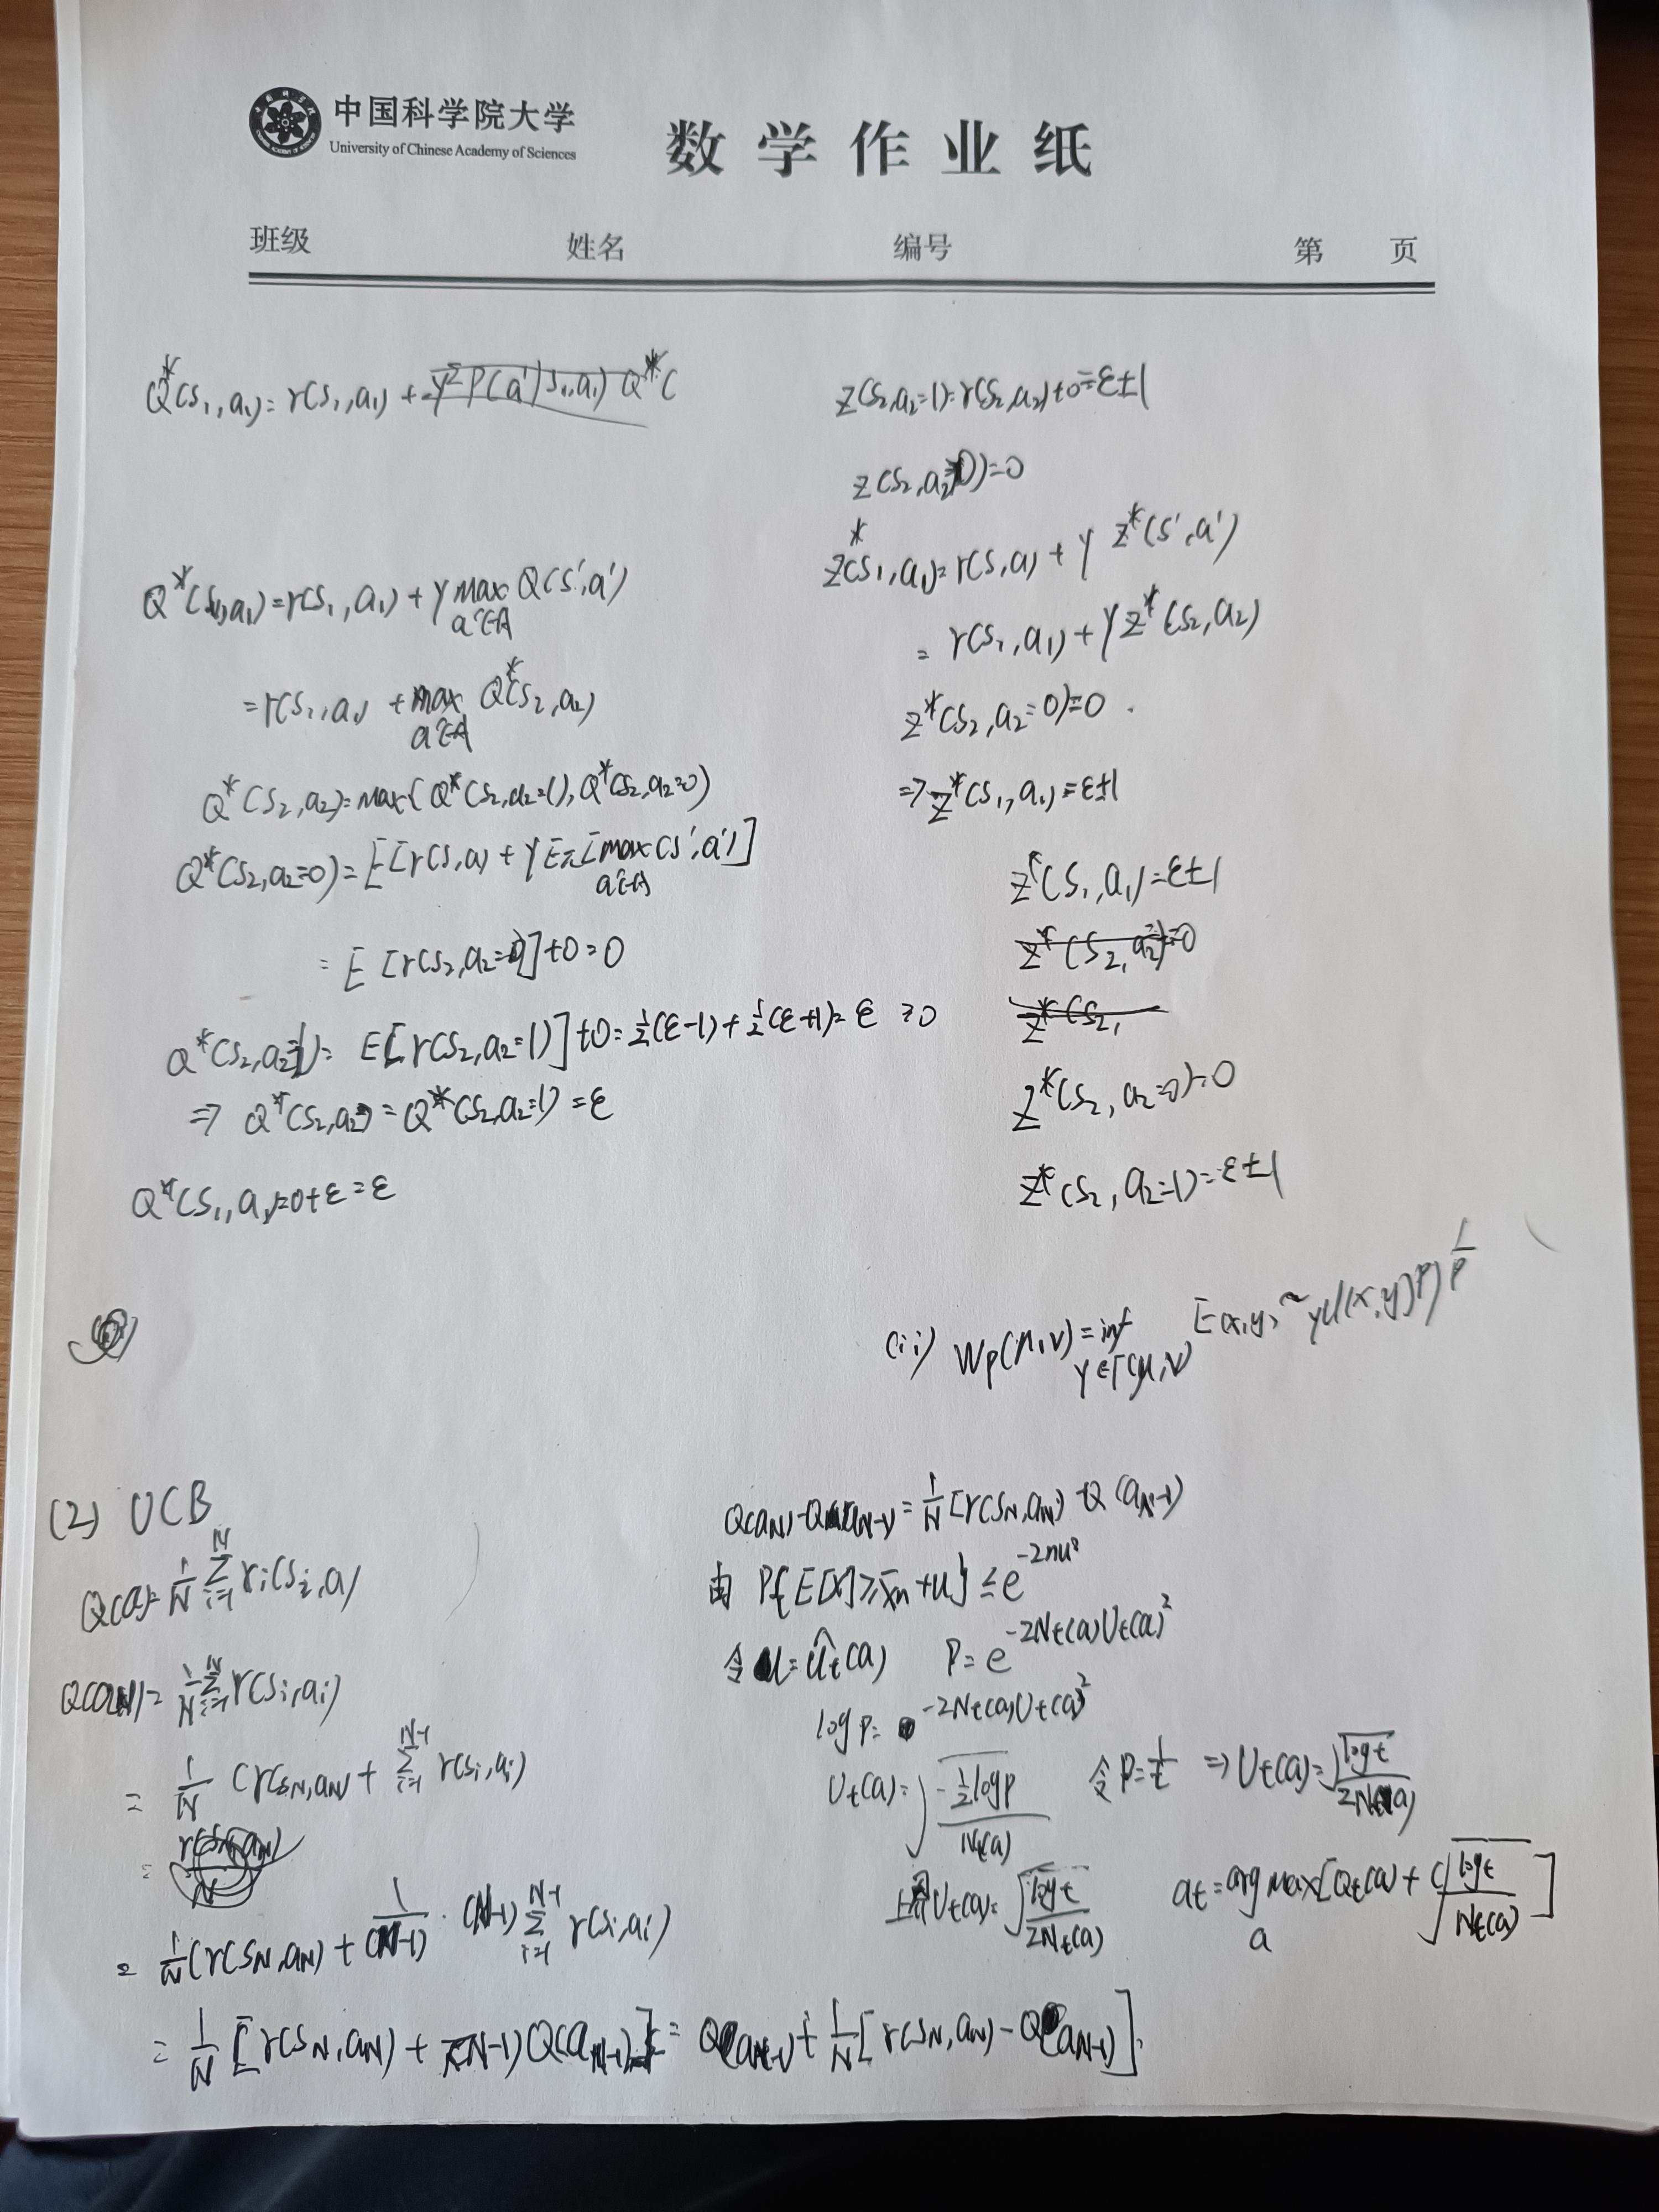 中国科学院大学
University of Chinese Academy of Sciences
数学作业纸
班级 姓名 编号 第 页
Q*(s₁,a₁)=r(s₁,a₁)+γΣP(a'|s₁,a₁)Q*(
Q*(s₁,a₁)=r(s₁,a₁)+γ max Q(s',a')
a'∈A
=r(s₁,a₁)+max Q*(s₂,a₂)
a'∈A
Q*(s₂,a₂)=max{Q*(s₂,a₂=1),Q*(s₂,a₂=0)
Q*(s₂,a₂=0)=E[r(s,a)+γEπ[max(s',a')]
a'∈A
=E[r(s₂,a₂=0)]+0=0
Q*(s₂,a₂=1)=E[r(s₂,a₂=1)]+0=½(ε-1)+½(ε+1)=ε≥0
⇒Q*(s₂,a₂)=Q*(s₂,a₂=1)=ε
Q*(s₁,a₁)=0+ε=ε
z(s₂,a₂=1)=r(s₂,a₂)+0=ε±1
z(s₂,a₂=0)=0
z*(s₁,a₁)=r(s,a)+γ z*(s',a')
=r(s₁,a₁)+γz*(s₂,a₂)
z*(s₂,a₂=0)=0.
⇒z*(s₁,a₁)=ε±1
z*(s₁,a₁)=ε±1
z*(s₂,a₂)=0
z*(s₂,
z*(s₂,a₂=0)=0
z*(s₂,a₂=1)=ε±1
(ii) Wp(μ,ν)=inf E(x,y)~γd(x,y)^p)^(1/p)
γ∈Γ(μ,ν)
(2) UCB
Q(a)=1/N Σ_{i=1}^{N} r_i(s_i,a)
Q(a_N)=1/N Σ_{i=1}^{N} r(s_i,a_i)
=1/N (r(s_N,a_N)+Σ_{i=1}^{N-1} r(s_i,a_i)
=
=1/N(r(s_N,a_N)+1/(N-1)·(N-1)Σ_{i=1}^{N-1} r(s_i,a_i)
=1/N[r(s_N,a_N)+(N-1)Q(a_{N-1})]=Q(a_{N-1})+1/N[r(s_N,a_N)-Q(a_{N-1})].
Q(a_N)-Q(a_{N-1})=1/N[r(s_N,a_N)-Q(a_{N-1})
由 P{E[X]≥x̄n+u}≤e^{-2nu²}
令u=Û_t(a) P=e^{-2N_t(a)U_t(a)²}
log P=-2N_t(a)U_t(a)²
U_t(a)=√(-½log p/N_t(a)) 令P=1/t ⇒U_t(a)=√(log t/2N_t(a))
U_t(a)=√(log t/2N_t(a)) a_t=arg max[Q_t(a)+c√(log t/N_t(a))]
a